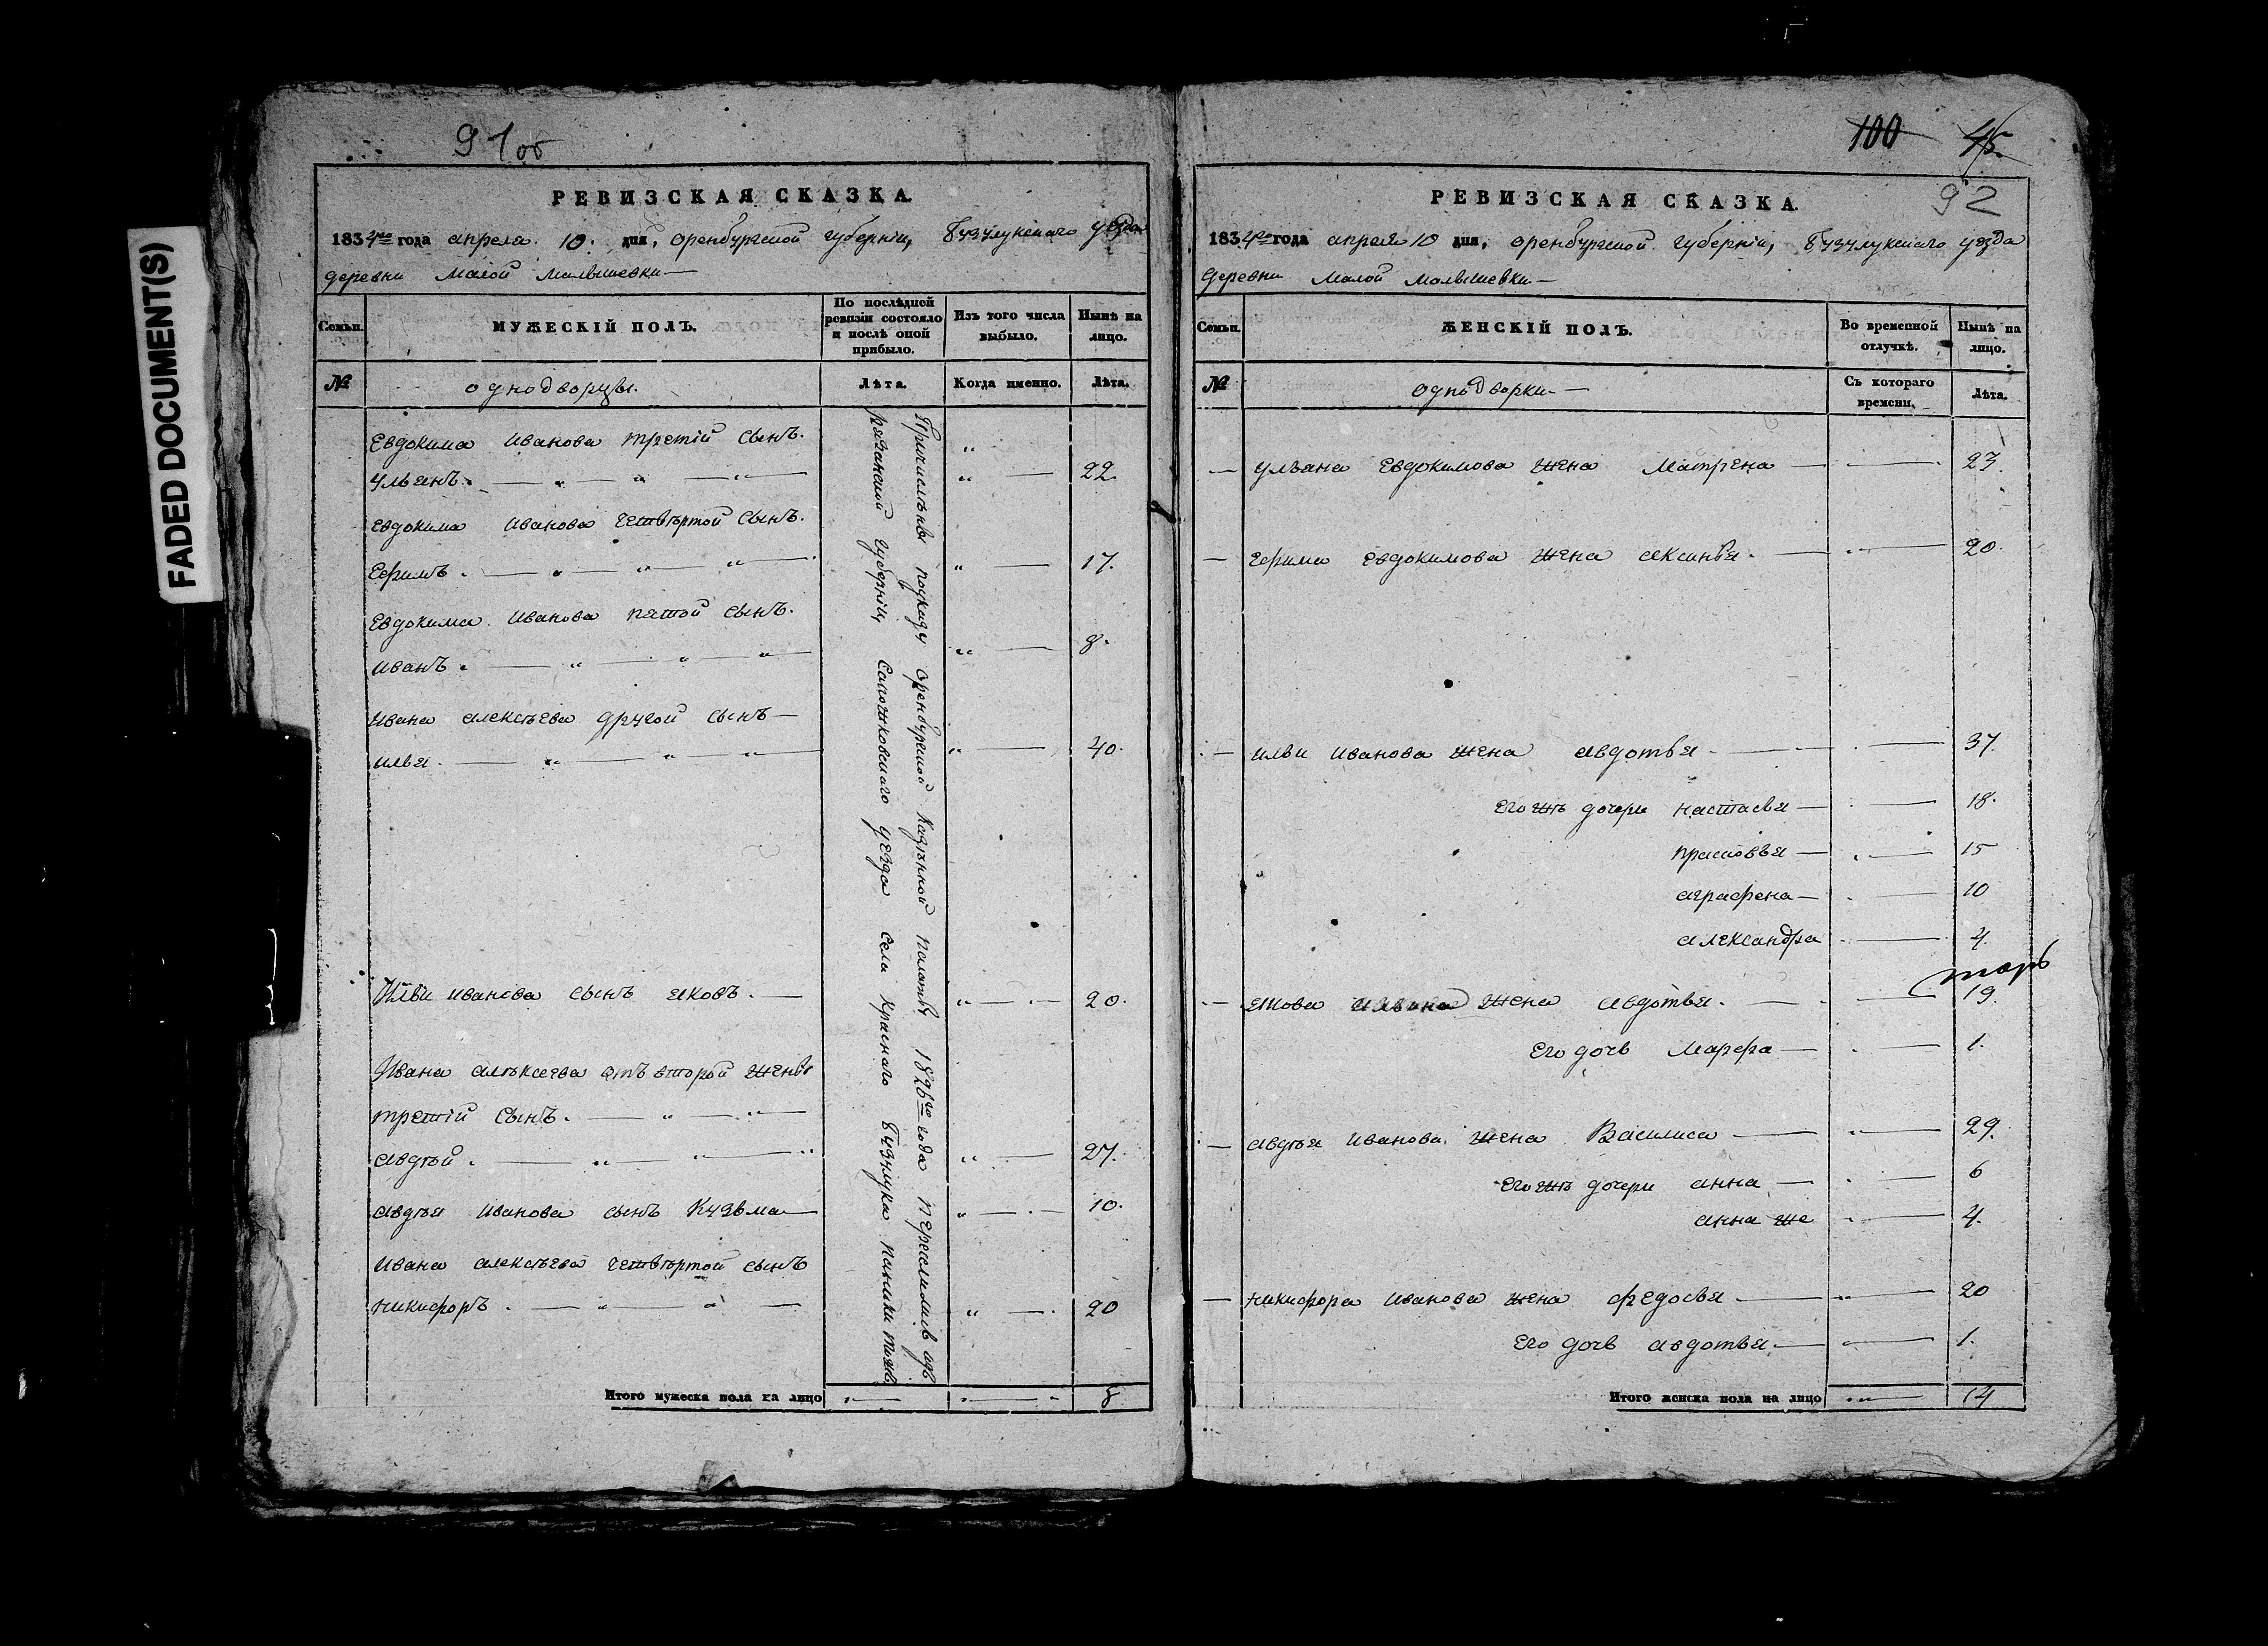 FADED DOCUMENT(S)
91 об
РЕВИЗСКАЯ СКАЗКА.
1834го года апреля 10. дня, оренбургской губерніи, бузулукскаго уезда
деревни малой малышевки
Семьи.
МУЖЕСКІЙ ПОЛЪ.
По послѣдней ревизіи состояло и послѣ оной прибыло.
Изъ того числа выбыло.
Нынѣ на лицо.
№
однодворцы.
Лѣта.
Когда именно.
Лѣта.
Евдокима Иванова третій сынъ.
Ульянъ. 22.
Евдокима Иванова четвѣртой сынъ.
Ефимъ. 17.
Евдокима Иванова пятой сынъ.
Иванъ. 8.
Ивана алексѣева другой сынъ
Илья. 40.
Ильи иванова сынъ яковъ. 20.
Ивана алѣксеева отъ второй жены
третій сынъ.
авдѣй. 27.
авдѣя Иванова сынъ Кузьма 10.
Ивана алексѣева четвѣртой сынъ
никифоръ. 20
Причислѣны поуказу Оренбургской Казѣнной палаты 1826го года переслились изъ
резанской губерніи Сапожковскаго уезда села Краснаго
Итого мужеска пола на лицо 8
100 45.
92
РЕВИЗСКАЯ СКАЗКА.
1834го года апреля 10 дня, оренбургской губерніи, бузулукскаго уезда
деревни малой малышевки
Семьи.
ЖЕНСКІЙ ПОЛЪ.
Во временной отлучкѣ.
Нынѣ на лицо.
№
однодворки
Съ котораго времени.
Лѣта.
ульяна Евдокимова жена Матрена 23.
Ефима Евдокимова жена аксинья. 20.
Ильи Иванова жена авдотья 37.
Егожъ дочери настасья 18.
прасковья 15
аграфена 10
александра 4.
якова ильина жена авдотья. 19.
Его дочь Марфа 1.
авдѣя Иванова жена Василиса 29.
Егожъ дочери анна 6
анна же 4.
никифора Иванова жена федосья 20
Его дочь авдотья. 1.
Итого женска пола на лицо 14